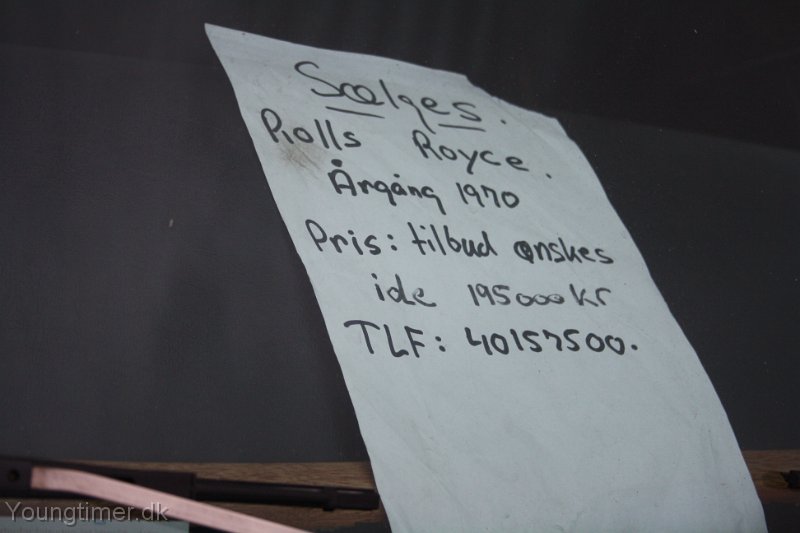 Sælges.
Rolls Royce.
Årgång 1970
Pris: tilbud ønskes
ide 195000 kr
TLF: 40157500.
Youngtimer.dk